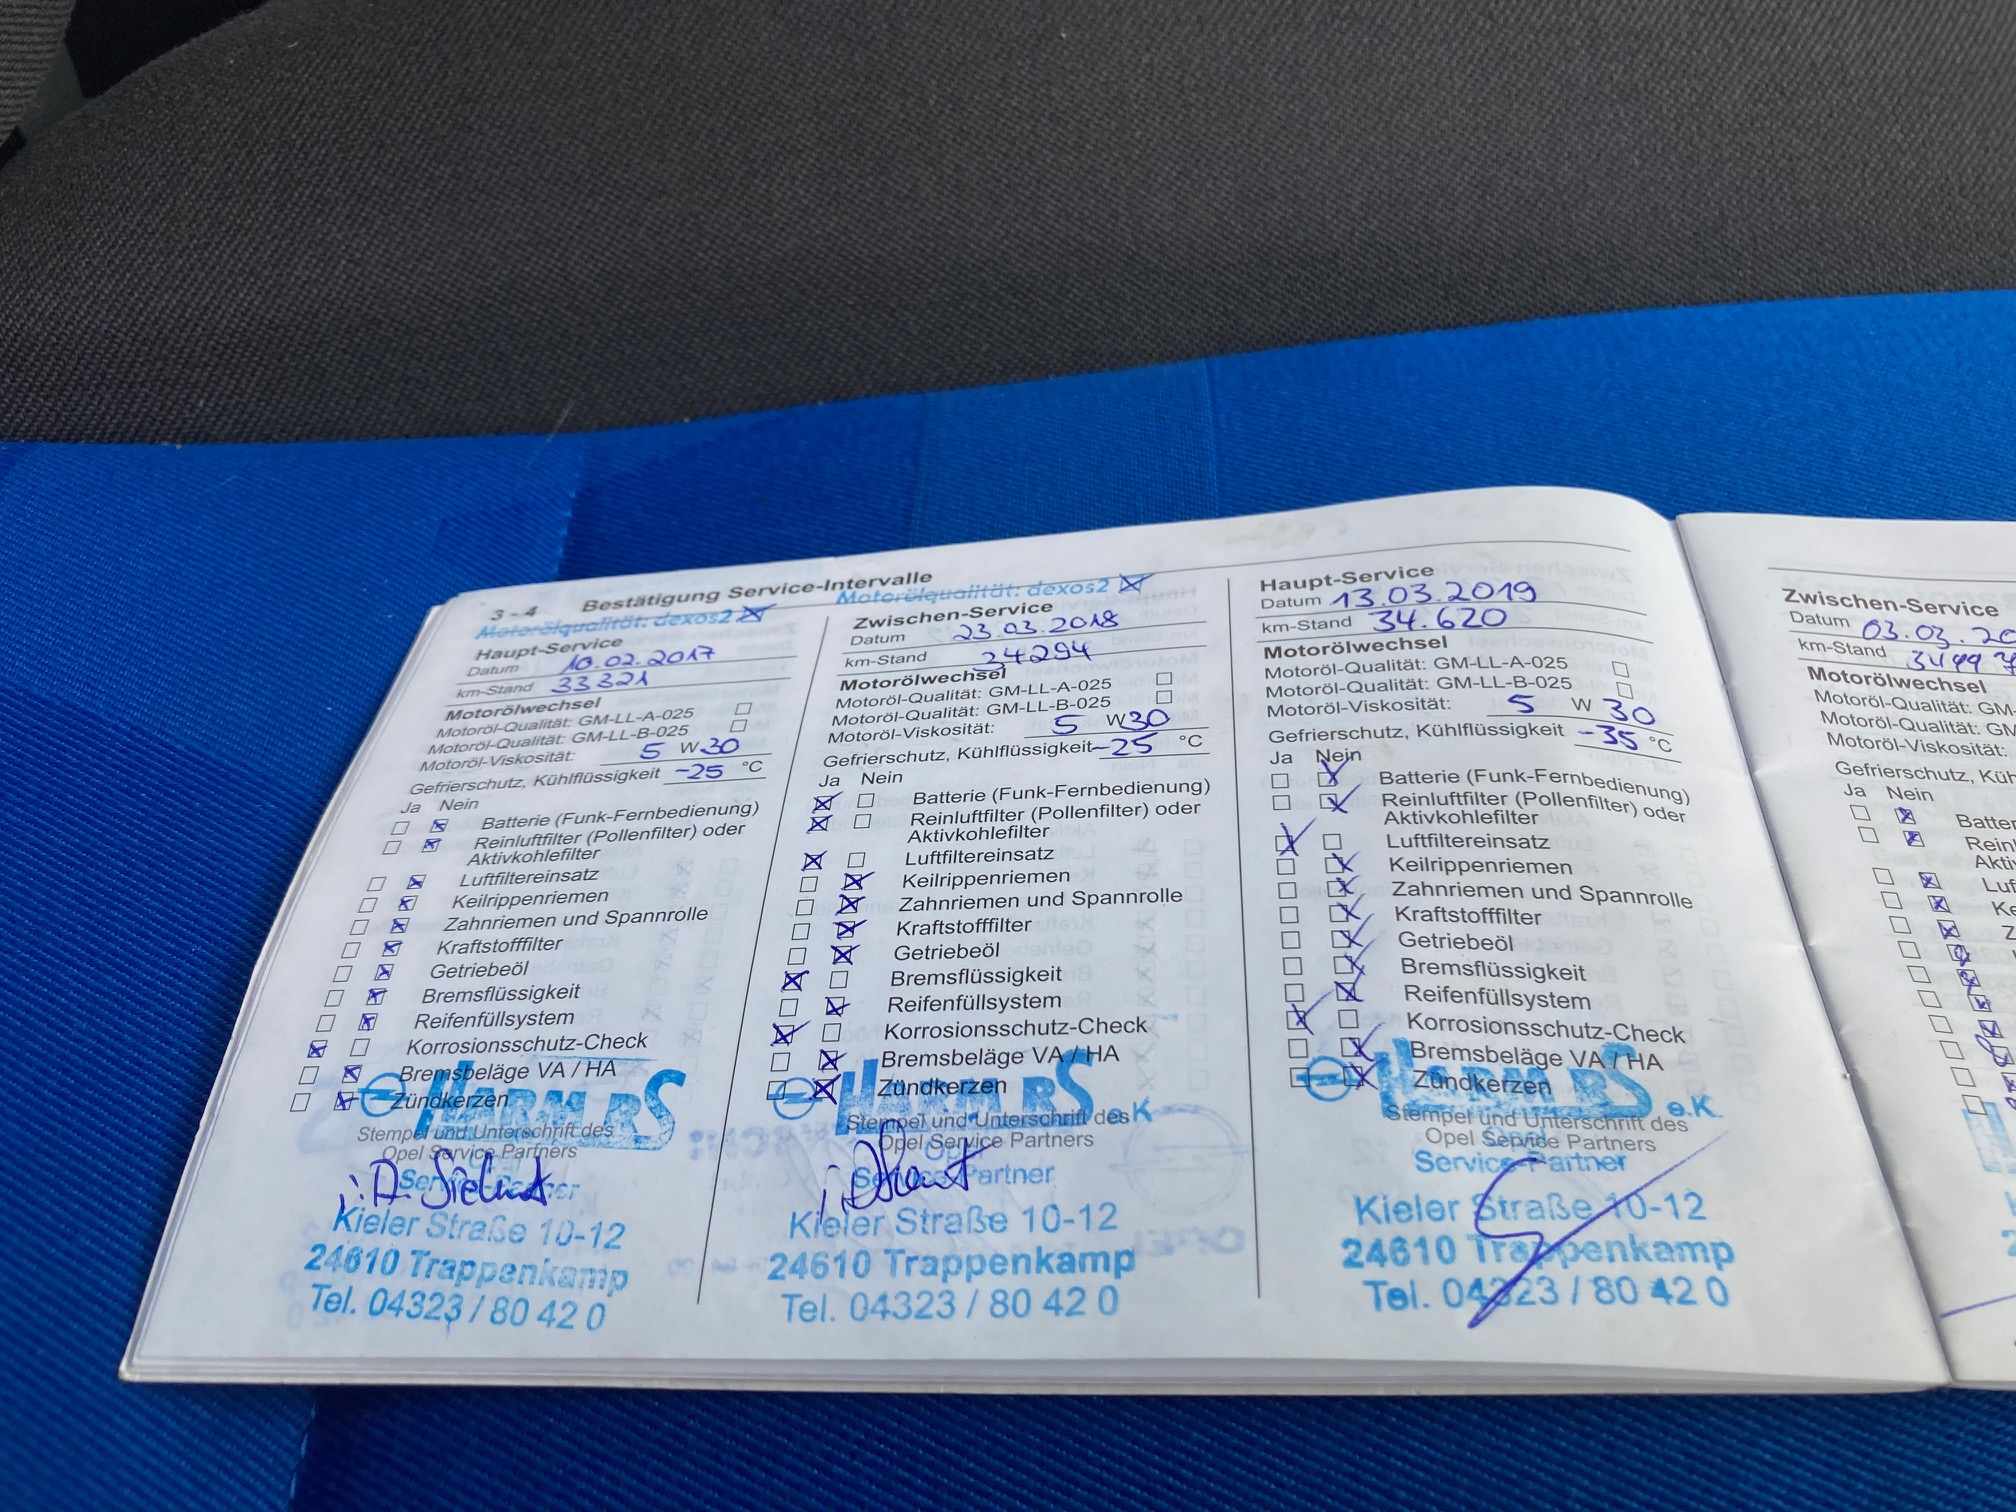 3 - 4 Bestätigung Service-Intervalle
Motorölqualität: dexos2
Haupt-Service
Datum 10.02.2017
km-Stand 33321
Motorölwechsel
Motoröl-Qualität: GM-LL-A-025
Motoröl-Qualität: GM-LL-B-025
Motoröl-Viskosität: 5 W 30
Gefrierschutz, Kühlflüssigkeit -25 °C
Ja Nein
Batterie (Funk-Fernbedienung)
Reinluftfilter (Pollenfilter) oder
Aktivkohlefilter
Luftfiltereinsatz
Keilrippenriemen
Zahnriemen und Spannrolle
Kraftstofffilter
Getriebeöl
Bremsflüssigkeit
Reifenfüllsystem
Korrosionsschutz-Check
Bremsbeläge VA / HA
Zündkerzen
Stempel und Unterschrift des
Opel Service Partners
Kieler Straße 10-12
24610 Trappenkamp
Tel. 04323 / 80 42 0
Motorölqualität: dexos2
Zwischen-Service
Datum 23.03.2018
km-Stand 34294
Motorölwechsel
Motoröl-Qualität: GM-LL-A-025
Motoröl-Qualität: GM-LL-B-025
Motoröl-Viskosität: 5 W 30
Gefrierschutz, Kühlflüssigkeit -25 °C
Ja Nein
Batterie (Funk-Fernbedienung)
Reinluftfilter (Pollenfilter) oder
Aktivkohlefilter
Luftfiltereinsatz
Keilrippenriemen
Zahnriemen und Spannrolle
Kraftstofffilter
Getriebeöl
Bremsflüssigkeit
Reifenfüllsystem
Korrosionsschutz-Check
Bremsbeläge VA / HA
Zündkerzen
e.K
Stempel und Unterschrift des
Opel Service Partners
Opel
Service Partner
Kieler Straße 10-12
24610 Trappenkamp
Tel. 04323 / 80 42 0
Haupt-Service
Datum 13.03.2019
km-Stand 34.620
Motorölwechsel
Motoröl-Qualität: GM-LL-A-025
Motoröl-Qualität: GM-LL-B-025
Motoröl-Viskosität: 5 W 30
Gefrierschutz, Kühlflüssigkeit -35 °C
Ja Nein
Batterie (Funk-Fernbedienung)
Reinluftfilter (Pollenfilter) oder
Aktivkohlefilter
Luftfiltereinsatz
Keilrippenriemen
Zahnriemen und Spannrolle
Kraftstofffilter
Getriebeöl
Bremsflüssigkeit
Reifenfüllsystem
Korrosionsschutz-Check
Bremsbeläge VA / HA
Zündkerzen
e.K.
Stempel und Unterschrift des
Opel Service Partners
Opel
Service-Partner
Kieler Straße 10-12
24610 Trappenkamp
Tel. 04323 / 80 42 0
Zwischen-Service
Datum 03.03.20
km-Stand 34997
Motorölwechsel
Motoröl-Qualität: GM-
Motoröl-Qualität: GM
Motoröl-Viskosität:
Gefrierschutz, Küh
Ja Nein
Batter
Rein
Akti
Luf
Ke
Z